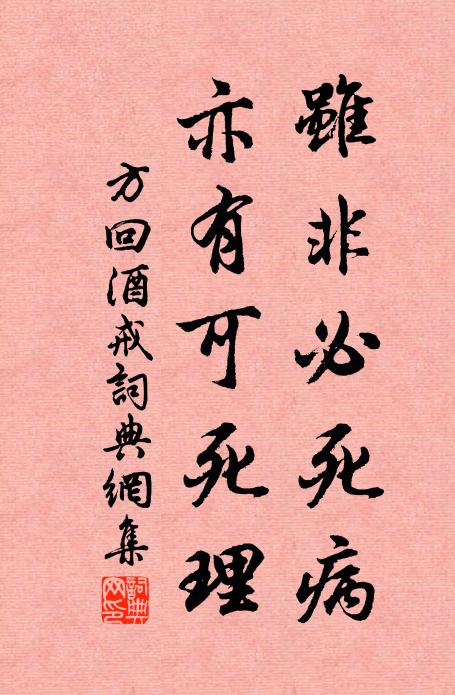 雖非必死病
亦有可死理
方回酒戒詞典網集
詞典網印